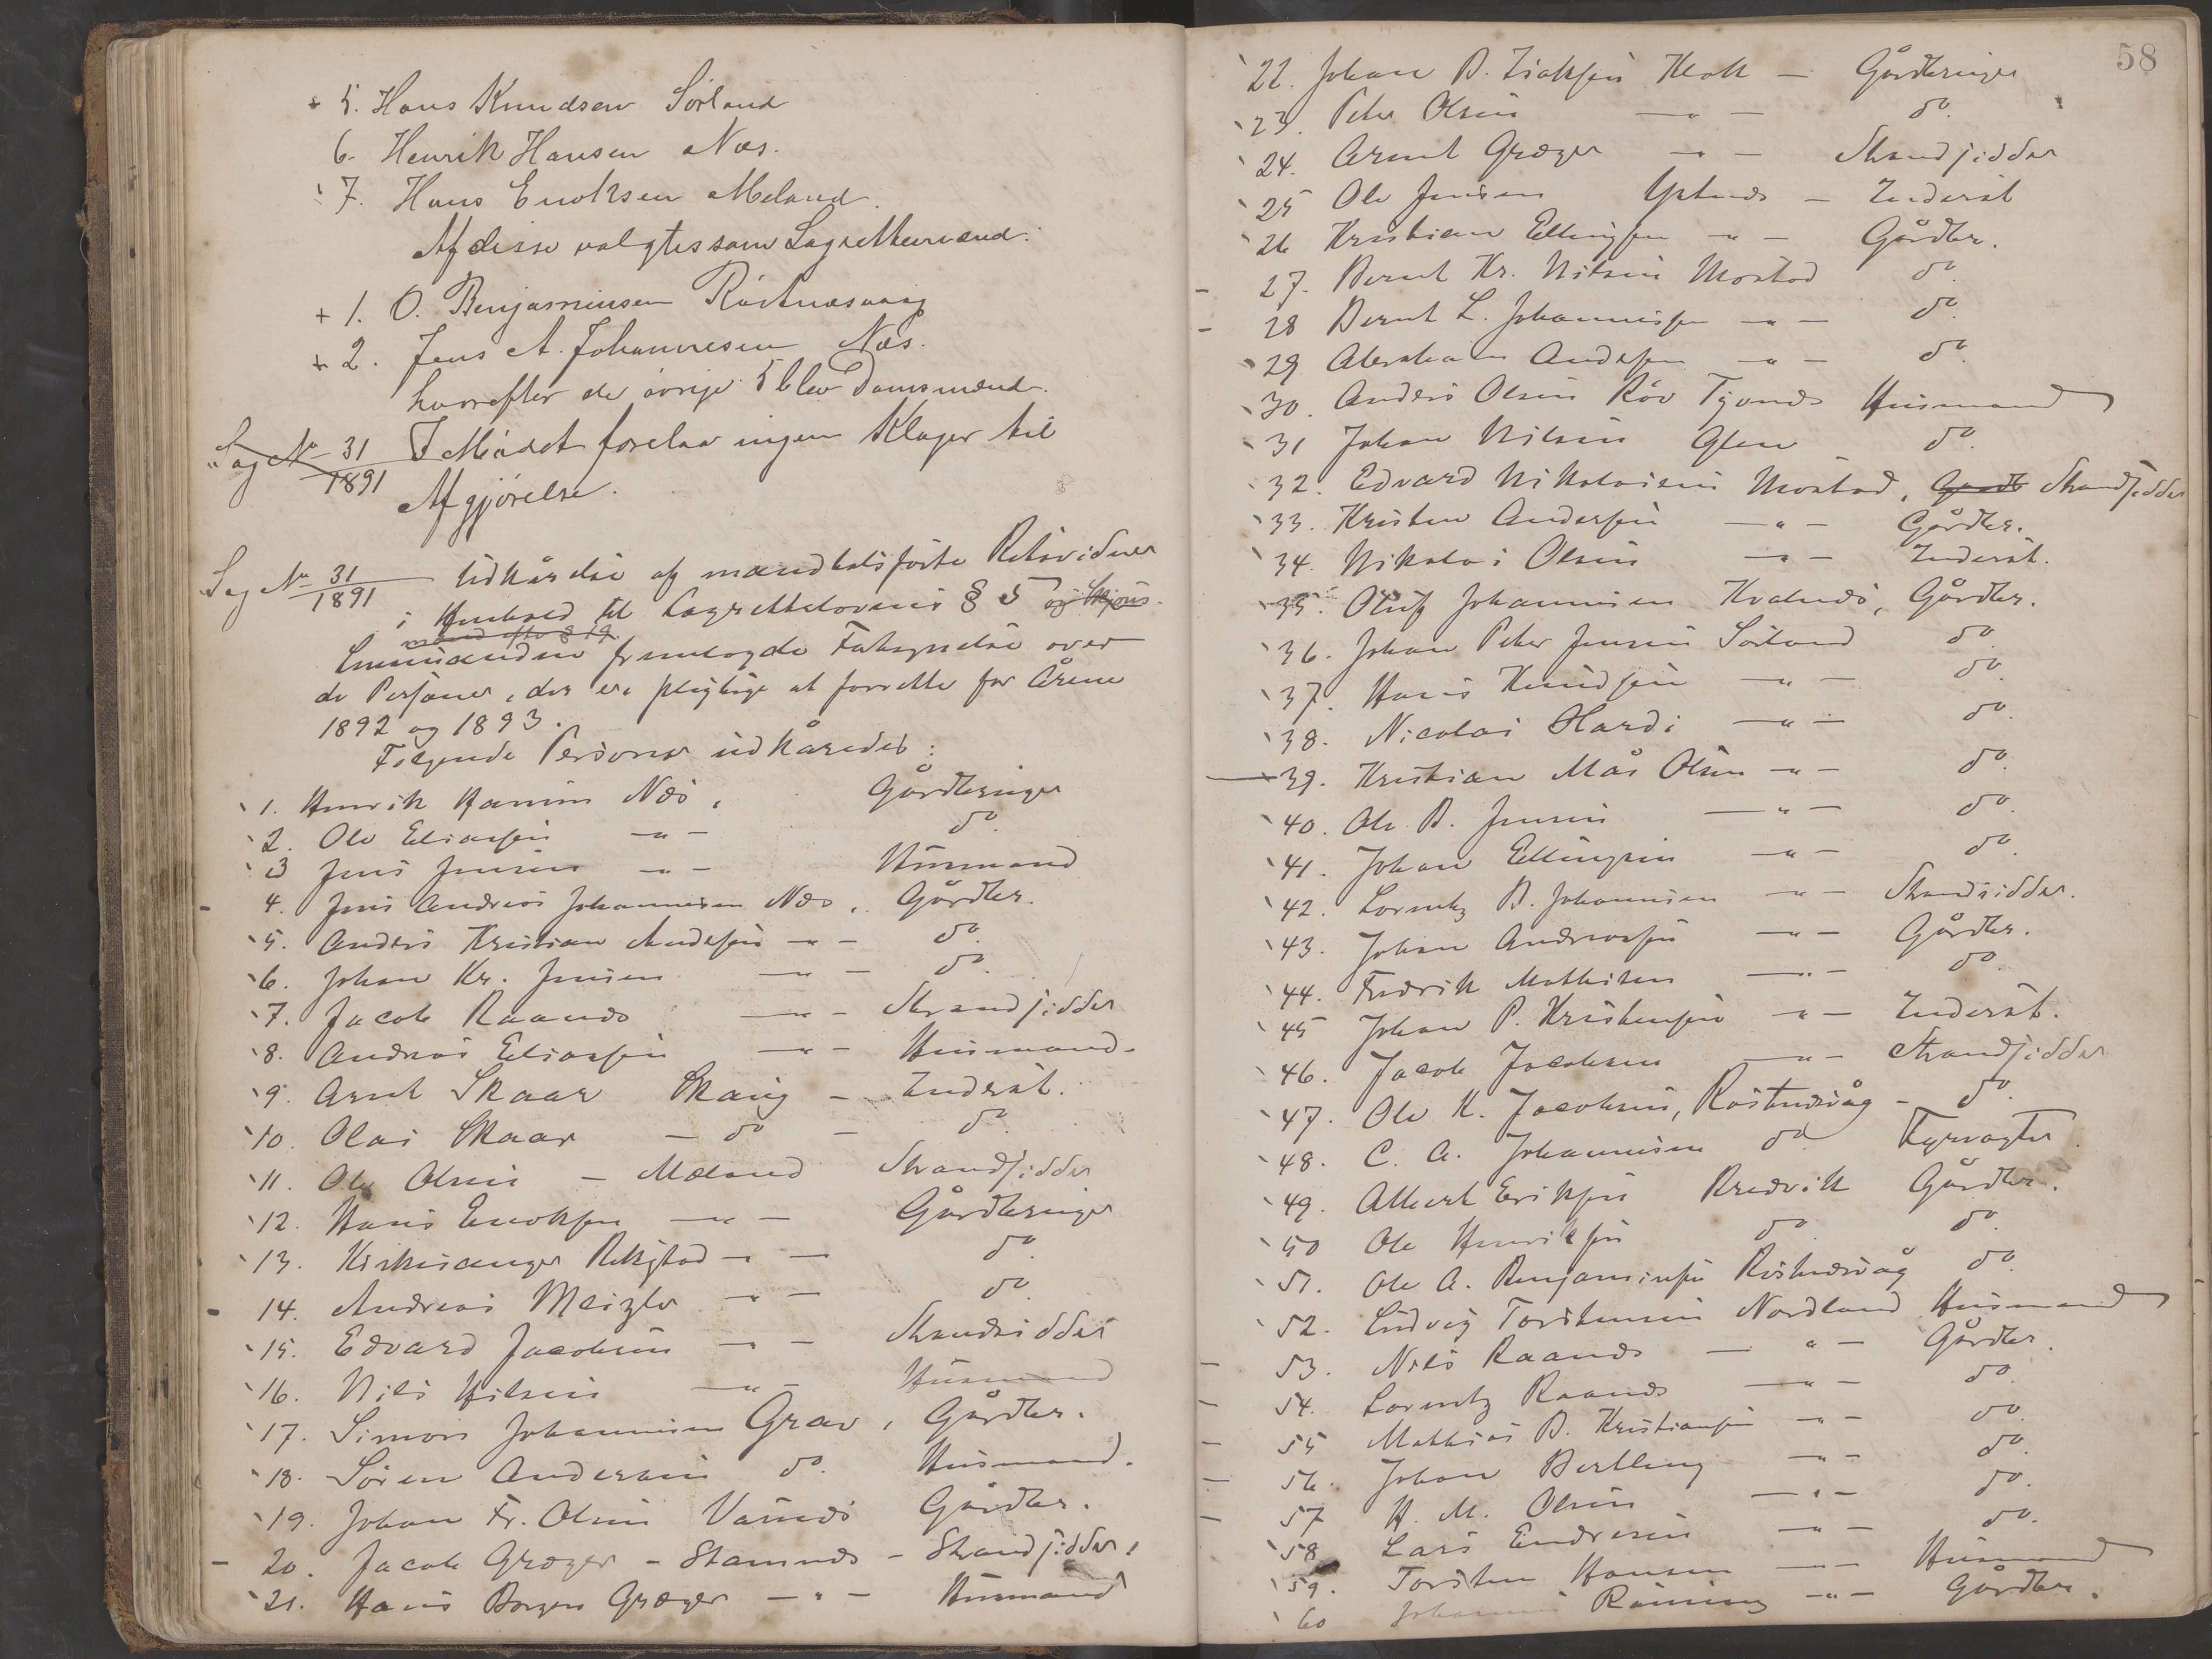 + 5. Hans Knudsen Sörland
6. Henrik Hansen Næs.
7. Hans Enoksen Meland.
Af disse valgtes som Lagrettemænd:
+ 1. O. Benjaminsen Röstnæsvaag
+ 2. Jens A. Johannesen Næs.
hvorefter de övrige 5 blev Domsmænd.
Sag No 31/1891 I Mödet forelaa ingen Klager til
Afgjörelse.
Sag No 31/1891 Udkårelse af mandtalsförte Retsvidner
i Henhold til Lagrettelovens § 5 og Skjöns-
mænd efter § 19
Lensmanden fremlagde Fortegnelse over
de Personer, der er pligtige at forrette for Årene
1892 og 1893.
Fölgende Personer udkåredes:
1. Henrik Hansen Næs, Gårdbruger
2. Ole Eliassen -"- do.
3 Jens Jensen -"- Husmand
4. Jens Andreas Johannesen Næs, Gårdbr.
5. Anders Kristian Andersen -"- do.
6. Johan Kr. Jensen -"- do.
7. Jacob Raanæs -"- Strandsidder
8. Andreas Eliassen -"- Husmand.
9. Arnt Skaar Skaug - Inderst.
10. Olai Skaar - do - do.
11. Ole Olsen - Mæland Strandsidder
12. Hans Enoksen -"- Gårdbruger
13. -"- do.
14. Andreas -"- do.
15. Edvard Jacobsen -"- Strandsidder
16. Nils Nilsen -"- Husmand
17. Simon Johannesen Grav, Gårdbr.
18. Sören Andersen do. Husmand.
19. Johan Fr. Olsen Gårdbr.
20. Jacob Græger - Stamnæs - Strandsidder,
21. Hans Græger -"- Husmand
58
22. Johan B. Isaksen - Gårdbruger
23. Peter Olsen -"- do.
24. Arnt Græger -"- Strandsidder
25 Ole Jensen - Inderst
26 Kristian Ellingsen -"- Gårdbr.
27. Bernt Kr. Nilsen Mostad do.
28 Bernt L. Johannessen -"- do.
29 Abraham Andersen -"- do.
30. Anders Olsen Husmand
31 Johan Nilsen Glea do.
32. Edvard Nikolaisen Mostad, Gårdb Strandsidder
33. Kristen Andersen -"- Gårdbr.
34. Nikolai Olsen -"- Inderst.
35. Oluf Johannesen Kvalnæs, Gårdbr.
36. Johan Peter Jensen Sörland do.
37. Hans Knudsen -"- do.
38. Nicolai Hardi -"- do.
39. Kristian Mås Olsen -"- do.
40. Ole B. Jensen -"- do.
41. Johan Ellingsen -"- do.
42. Lorentz B. Johannesen -"- Strandsidder.
43. Johan Andreassen -"- Gårdbr.
44. Fredrik Mathisen -"- do.
45 Johan P. Kristensen -"- Inderst.
46. Jacob Jacobsen -"- Strandsidder
47. Ole K. Jacobsen, Röstnæsvåg - do.
48. C. A. Johannesen do Fyrvogter.
49. Albert Eriksen Bredvik Gårdbr.
50 Ole Henriksen do do.
51. Ole A. Benjaminsen Röstnæsvåg do.
52. Ludvig Torstensen Nordland Husmand
53. Nils Raanæs -"- Gårdbr.
54. Lorentz Raanæs -"- do.
55 Mathias B. Kristiansen -"- do.
56. Johan Bertling -"- do.
57 H. M. Olsen -"- do.
58 Lars Endresen -"- do.
59. Torsten Hansen -"- Husmand
60 Johannes Rönning -"- Gårdbr.